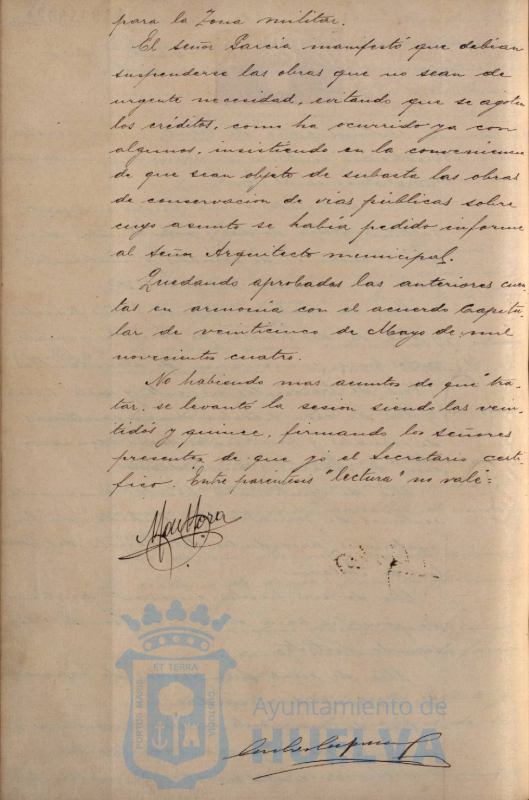 para la Zona militar.
El señor Garcia manifestó que debian
suspenderse las obras que no sean de
urgente necesidad, evitando que se agoten
los créditos, como ha ocurrido ya con
algunos, insistiendo en la conveniencia
de que sean objeto de subasta las obras
de conservacion de vias públicas sobre
cuyo asunto se había pedido informe
al Señor Arquitecto municipal.
Quedando aprobadas las anteriores cuen-
tas en armonia con el acuerdo Capitu-
lar de veinticinco de Mayo de mil
novecientos cuatro.
No habiendo mas asuntos de que tra-
tar, se levantó la sesion siendo las vein-
tidós y quince, firmando los señores
presentes de que yo el Secretario certi-
fico. Entre paréntesis "lectura" no vale=
ET TERRÆ
PORTUS MARIS
CUSTODIA
Ayuntamiento de
HUELVA